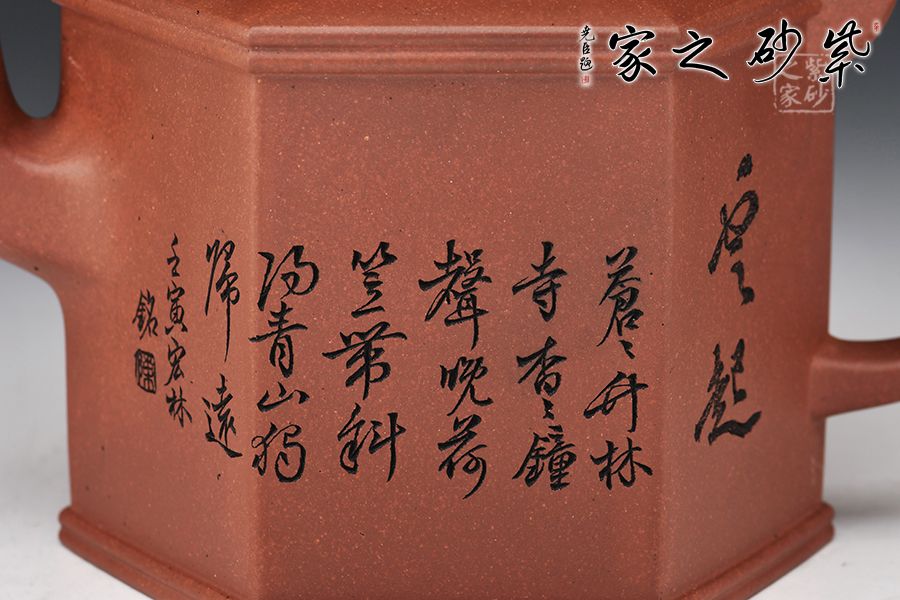 紫砂之家
堯臣題
紫砂
之家
蒼〻竹林
寺杳〻鐘
聲晚荷
笠帶斜
陽青山獨
歸遠
壬寅宏林
銘